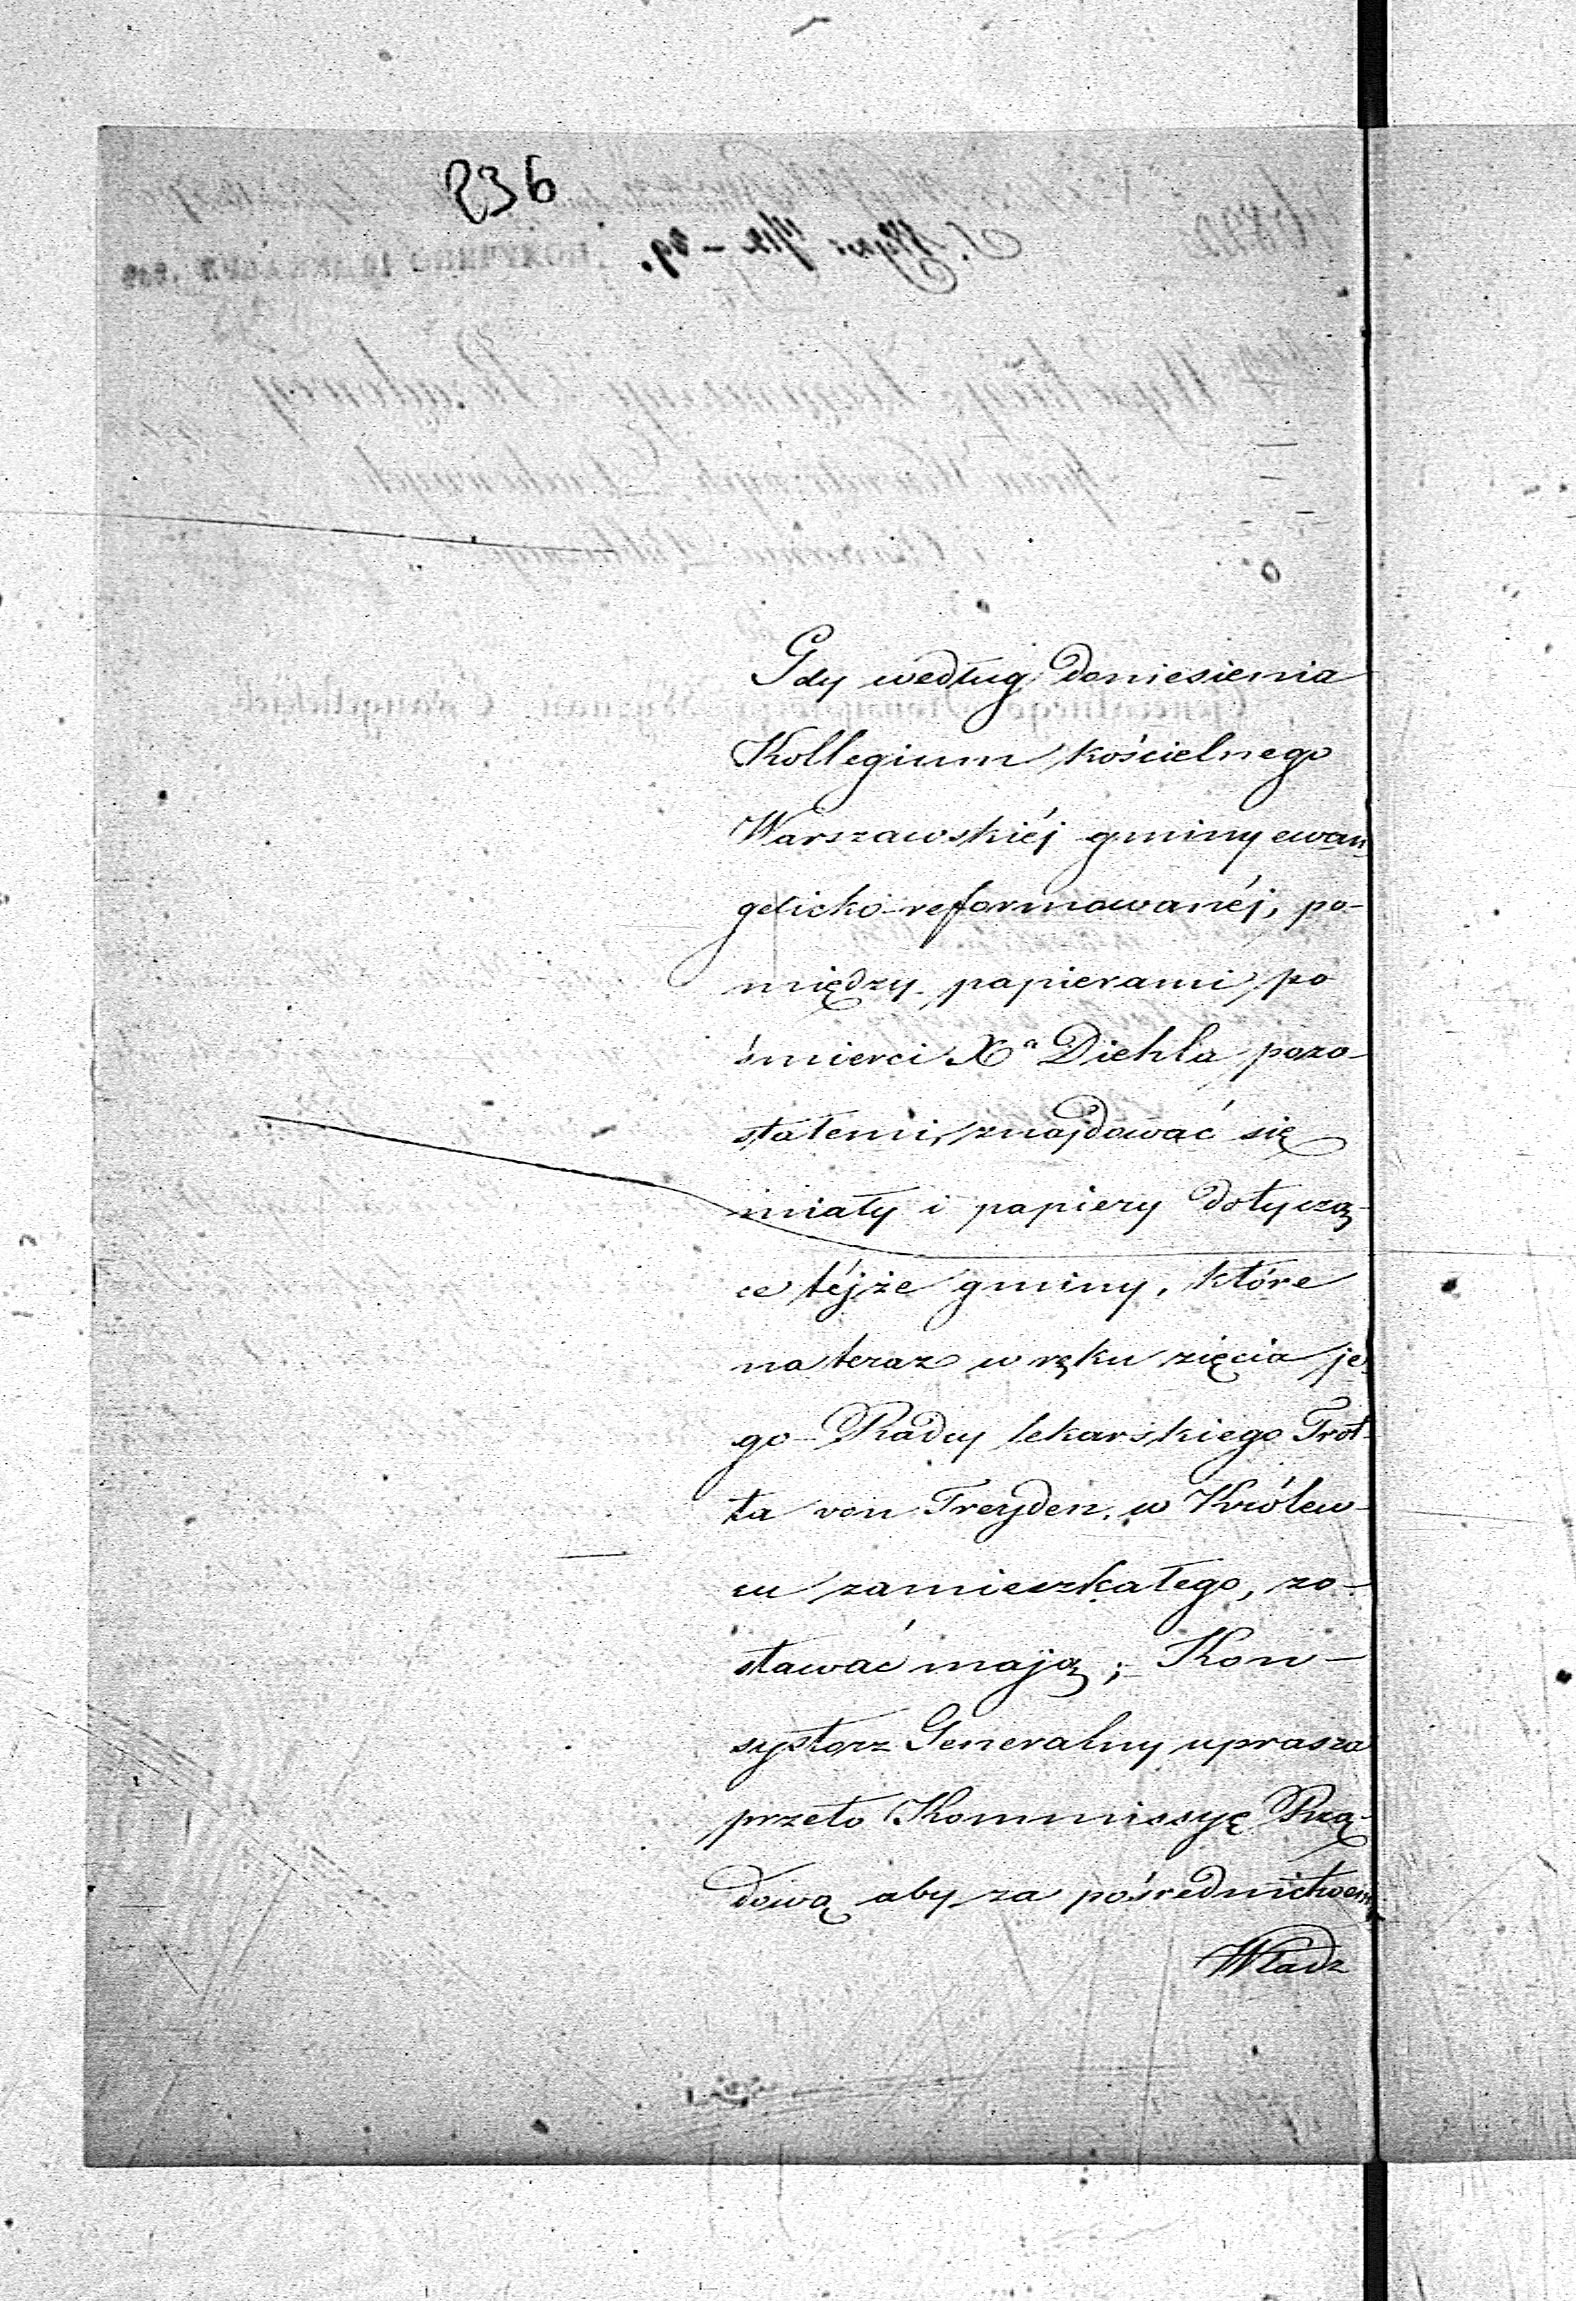 236
Gdy według doniesienia
Kollegium kościelnego
Warszawskiéj gminy ewan-
gelicko-reformowanéj, po-
między papierami po
śmierci Xa Diehla pozo-
stałemi, znajdować się
miały i papiery dotyczą-
ce téjże gminy, które
na teraz w ręku zięcia je-
go Radcy lekarskiego Trot-
ta von Treyden, w Królew-
cu zamieszkałego, zo-
stawać mają; Kon-
systorz Generalny uprasza
przeto Kommissyę Rzą-
dową aby za pośrednictwem
Władz